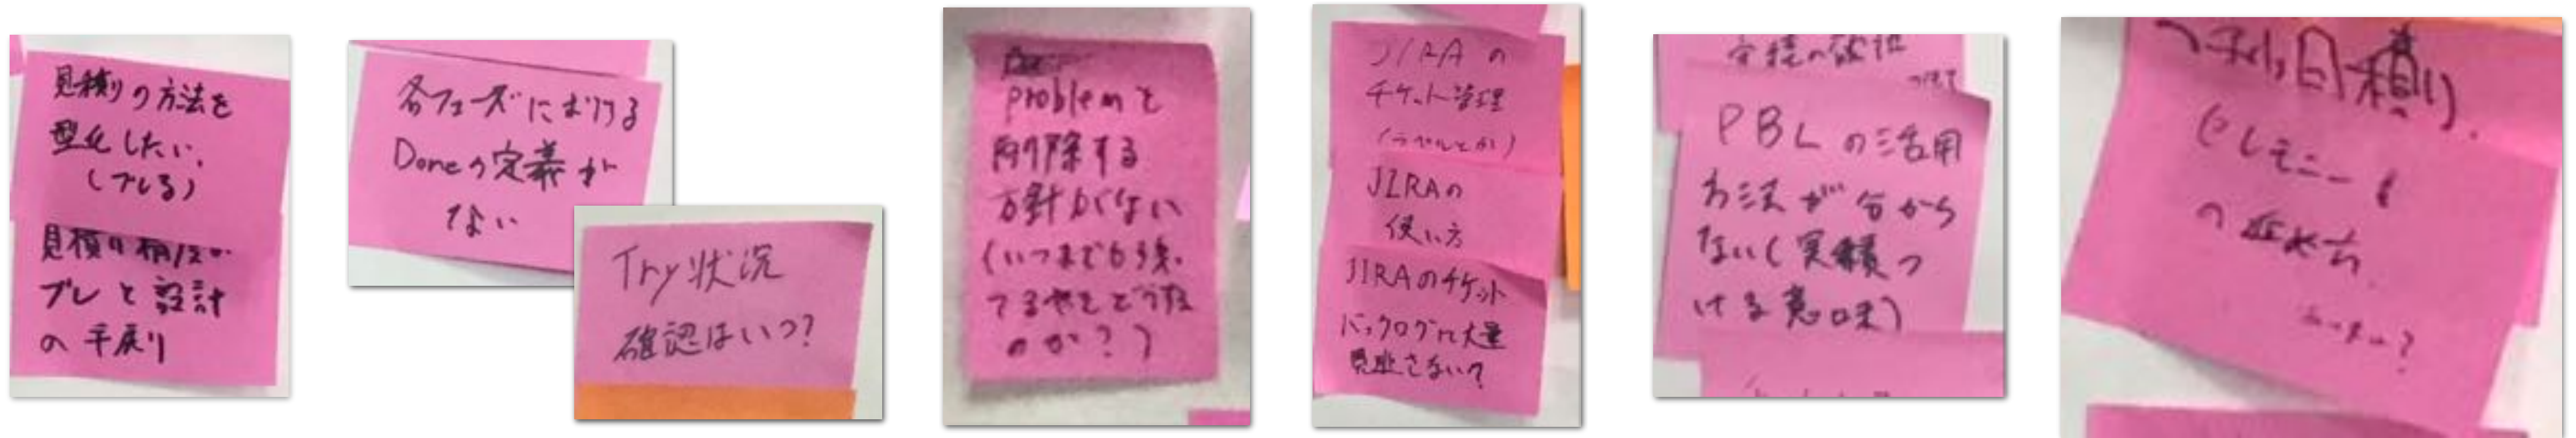 見積りの方法を
型化したい.
(ブレる)
見積り
ブレと設計
の手戻り
各フェーズにおける
Doneの定義が
ない
Try状況
確認はいつ?
problemを
削除する
方針がない
(いつまでも残っ
てるやつをどうする
のか?)
JIRAの
チケット管理
(ラベルとか)
JIRAの
使い方
JIRAのチケット
バックログに大量
見逃さない?
PBLの活用
方法が分から
ない(実績つ
ける意味)
見積り.
セレモニー
の進め方.